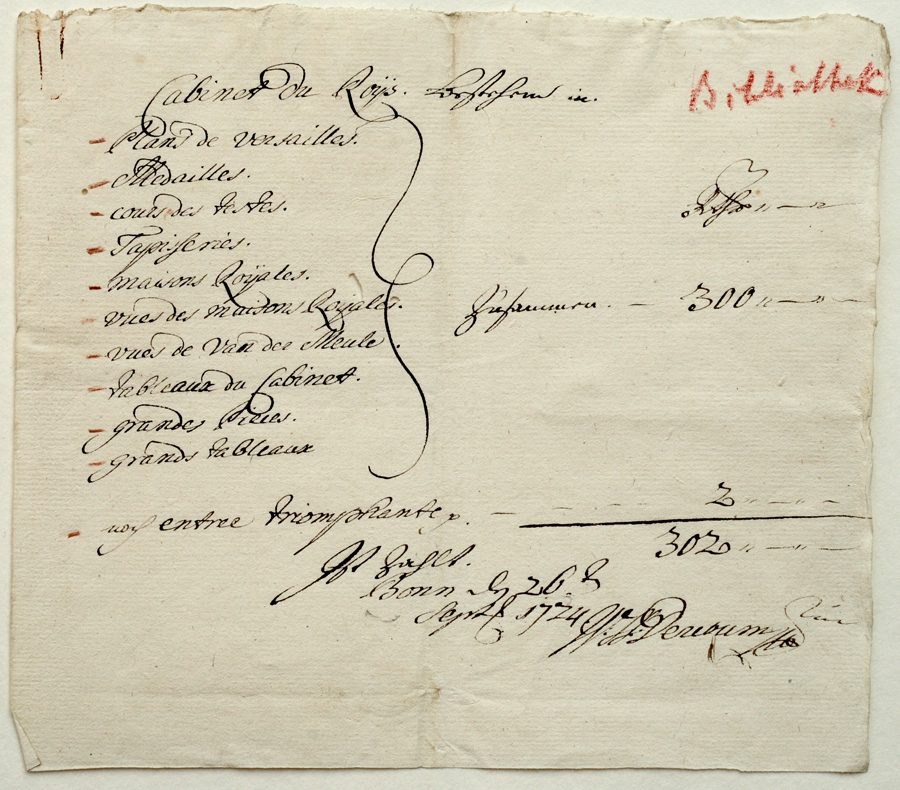 Bibliothek
Cabinet du Roÿs. bestehend in.
Plans de versailles.
Medailles.
courses des testes.
Tapisseries.
maisons Roÿales.
vues des maisons Royales.
vues de van der Meule.
tableaux du Cabinet.
grandes Pieces.
grands tableaux
Rthr
Zusammen. — 300
noch entree triomphante — 2
302
Ist Zahlt.
Bonn d 26 t
Sept 1724